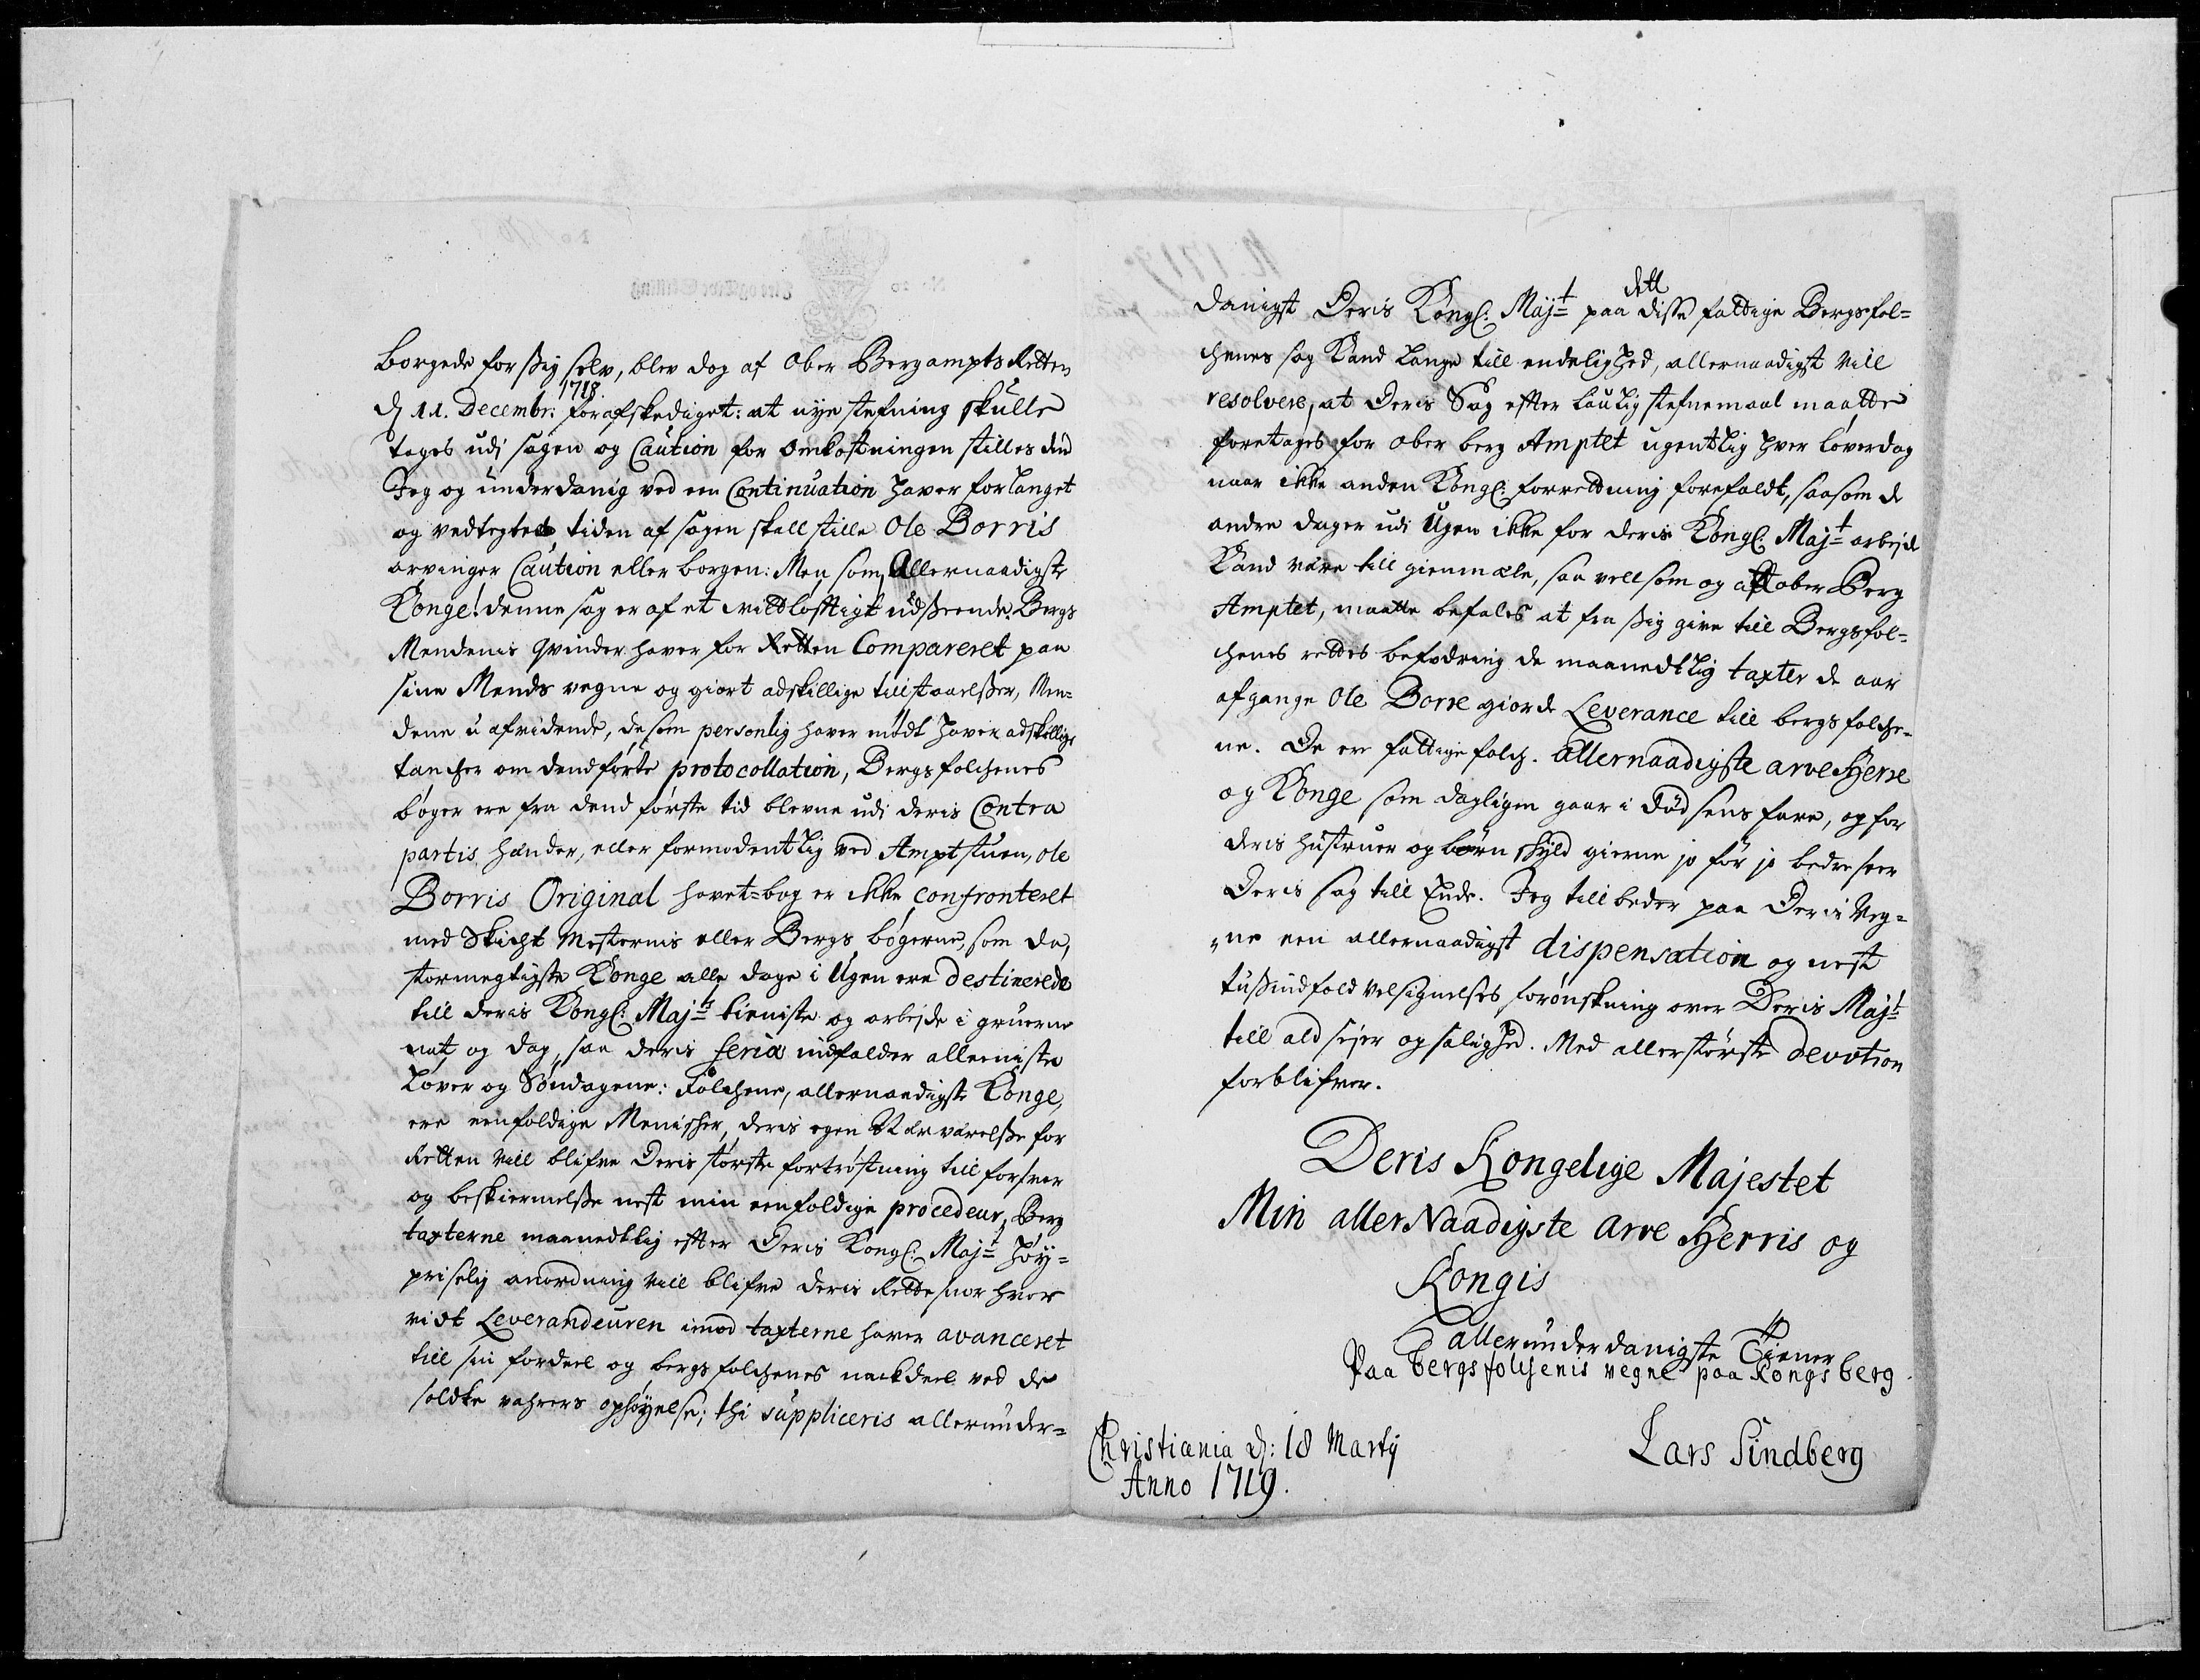 borgede for ßig selv, blev dog af Ober Bergampts Retten
d 11. Decembr: 1718. forafskediget: at nye stefning skulle
tages udj sagen og Caution for Omkostningen stilles End
Jeg og underdanig ved een Continuation haver forlanget
og vedtegted, tiden af sagen skall stille Ole Borris
arvinger Caution eller borgen: Men som, Allernaadigste
Konge! denne sag er af et vittløfftigt udßeende. Bergs
Mendenis qvinder haver for Retten Compareret paa
sine Mends vegne og giort adskillige tillstaaelßer, Men¬
dene u afvidende, de som personlig haver mødt haver adskillige
tancher om dend førte protocollation, Bergsfolchenes
bøger ere fra dend første tid blevne udj deris Contra
partis hænder, eller formodentlig ved Amptstuen, Ole
Borris Original hovet=bog er ikke confronteret
med Skicht Mesternis eller Bergs bøgerne, som da,
stormegtigste Konge alle dage i Ugen ere destinerede
till deris Kongl: Majts tieniste og arbejde i gruerne
nat og dag, saa deris feriæ indfalder alleeniste
Løver og Søndagene: Folchene, allernaadigste Konge,
ere eenfoldige Menisher, deris egen Nærværelße for
Retten vill blifve Deris største fortrøstning till forsvar
og beskiermelße nest min eenfoldige procedeur, Berg
taxterne maanedtlig efter Deris Kongl: Majts Høy¬
priselig anordning vill blifve deris Rettesnor hvor
vidt Leverandeuren imod taxterne haver avanceret
till sin fordeel og bergsfolchenes nackdeel ved de
soldte vahrers ophøyelse; thi suppliceris allerunder=
danigst Deris Kongl: Mayt paa dett disse fattige Bergsfol=
chenes sag Kand lange till endelighed, allernaadigst vill
resolvere, at Deris Sag efter lauLig stefnemaal maatte
foretages for Ober berg Amptet ugentlig hver løverdag
naar ikke anden Kongl: forrettning forefaldt, saasom de
andre dager udi Ugen ikke for deris Kongl Majts arbejde
Kand være till giennæle, saa vell som og att ober Berg
Amptet, maatte befales at fra ßig give till Bergsfol=
chenes rettes befodring de maanedtlig taxter de aar
afgangne Ole Borre giorde Leverance till bergsfolche=
ne. De ere fattige folch. allernaadigste arve Herre
og Konge som dagligen gaar i Dødsens fare, og for
deris hustruer og børn skyld gierne jo før jo bedre seer
Deris sag till Ende. Jeg tillbeder paa Deris Veg=
ne een allernaadigst dispensation og nest
tußindfold velsignelses forønskning over Deris Majt
till ald sejer og salighed. Med allerstørste devotion
forblifver.
Deris Kongelige Majestet
Min allerNaadigste Arve Herris og
Kongis
allerunderdanigste Tiener
Paa bergsfolchenis vegne paa Kongsberg.
Lars Lindberg
Christiania d: 18 Martÿ
Anno 1719.